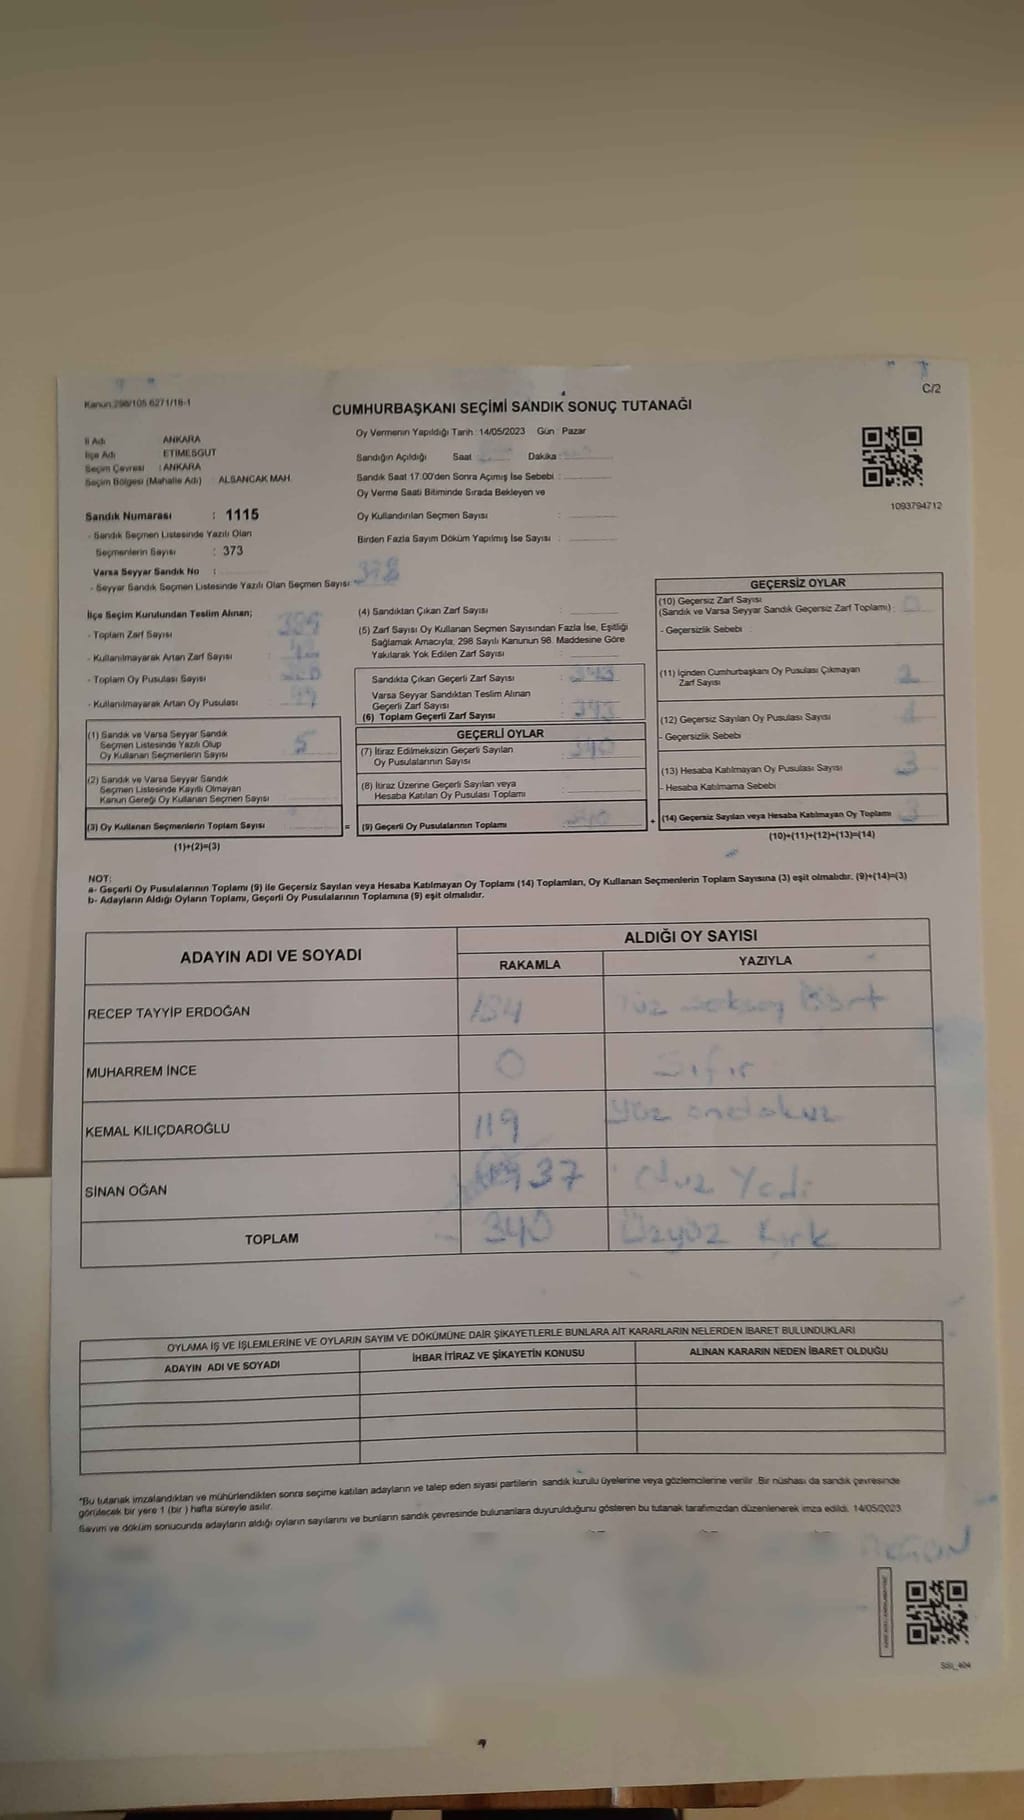 Kanun:298/105.6271/16-1
C/2
CUMHURBAŞKANI SEÇİMİ SANDIK SONUÇ TUTANAĞI
İl Adı ANKARA
İlçe Adı ETİMESGUT
Seçim Çevresi : ANKARA
Seçim Bölgesi (Mahalle Adı) : ALSANCAK MAH.
Sandık Numarası : 1115
- Sandık Seçmen Listesinde Yazılı Olan
Seçmenlerin Sayısı : 373
Varsa Seyyar Sandık No :
- Seyyar Sandık Seçmen Listesinde Yazılı Olan Seçmen Sayısı:
Oy Vermenin Yapıldığı Tarih : 14/05/2023 Gün : Pazar
Sandığın Açıldığı Saat Dakika :
Sandık Saat 17:00'den Sonra Açımış İse Sebebi :
Oy Verme Saati Bitiminde Sırada Bekleyen ve
Oy Kullandırılan Seçmen Sayısı :
Birden Fazla Sayım Döküm Yapılmış İse Sayısı :
1093794712
İlçe Seçim Kurulundan Teslim Alınan;
- Toplam Zarf Sayısı :
- Kullanılmayarak Artan Zarf Sayısı :
- Toplam Oy Pusulası Sayısı :
- Kullanılmayarak Artan Oy Pusulası :
(1) Sandık ve Varsa Seyyar Sandık
Seçmen Listesinde Yazılı Olup
Oy Kullanan Seçmenlerin Sayısı : 5
(2) Sandık ve Varsa Seyyar Sandık
Seçmen Listesinde Kayıtlı Olmayan
Kanun Gereği Oy Kullanan Seçmen Sayısı
(3) Oy Kullanan Seçmenlerin Toplam Sayısı :
(1)+(2)=(3)
(4) Sandıktan Çıkan Zarf Sayısı :
(5) Zarf Sayısı Oy Kullanan Seçmen Sayısından Fazla İse, Eşitliği
Sağlamak Amacıyla, 298 Sayılı Kanunun 98. Maddesine Göre
Yakılarak Yok Edilen Zarf Sayısı :
Sandıkta Çıkan Geçerli Zarf Sayısı : 343
Varsa Seyyar Sandıktan Teslim Alınan
Geçerli Zarf Sayısı :
(6) Toplam Geçerli Zarf Sayısı : 343
GEÇERLİ OYLAR
(7) İtiraz Edilmeksizin Geçerli Sayılan : 340
Oy Pusulalarının Sayısı
(8) İtiraz Üzerine Geçerli Sayılan veya
Hesaba Katılan Oy Pusulası Toplamı :
= (9) Geçerli Oy Pusulalarının Toplamı : 340 +
GEÇERSİZ OYLAR
(10) Geçersiz Zarf Sayısı
(Sandık ve Varsa Seyyar Sandık Geçersiz Zarf Toplamı) : 0
- Geçersizlik Sebebi :
(11) İçinden Cumhurbaşkanı Oy Pusulası Çıkmayan
Zarf Sayısı :
(12) Geçersiz Sayılan Oy Pusulası Sayısı :
- Geçersizlik Sebebi
(13) Hesaba Katılmayan Oy Pusulası Sayısı : 3
- Hesaba Katılmama Sebebi
(14) Geçersiz Sayılan veya Hesaba Katılmayan Oy Toplamı : 3
(10)+(11)+(12)+(13)=(14)
NOT:
a- Geçerli Oy Pusulalarının Toplamı (9) ile Geçersiz Sayılan veya Hesaba Katılmayan Oy Toplamı (14) Toplamları, Oy Kullanan Seçmenlerin Toplam Sayısına (3) eşit olmalıdır. (9)+(14)=(3)
b- Adayların Aldığı Oyların Toplamı, Geçerli Oy Pusulalarının Toplamına (9) eşit olmalıdır.
ADAYIN ADI VE SOYADI ALDIĞI OY SAYISI
RAKAMLA YAZIYLA
RECEP TAYYİP ERDOĞAN 184 Yüz seksen Dört
MUHARREM İNCE 0 Sıfır
KEMAL KILIÇDAROĞLU 119 Yüz ondokuz
SİNAN OĞAN 37 Otuz Yedi
TOPLAM 340 Üçyüz Kırk
OYLAMA İŞ VE İŞLEMLERİNE VE OYLARIN SAYIM VE DÖKÜMÜNE DAİR ŞİKAYETLERLE BUNLARA AİT KARARLARIN NELERDEN İBARET BULUNDUKLARI
ADAYIN ADI VE SOYADI İHBAR İTİRAZ VE ŞİKAYETİN KONUSU ALINAN KARARIN NEDEN İBARET OLDUĞU
"Bu tutanak imzalandıktan ve mühürlendikten sonra seçime katılan adayların ve talep eden siyasi partilerin sandık kurulu üyelerine veya gözlemcilerine verilir. Bir nüshası da sandık çevresinde
görülecek bir yere 1 (bir ) hafta süreyle asılır.
Sayım ve döküm sonucunda adayların aldığı oyların sayılarını ve bunların sandık çevresinde bulunanlara duyurulduğunu gösteren bu tutanak tarafımızdan düzenlenerek imza edildi. 14/05/2023